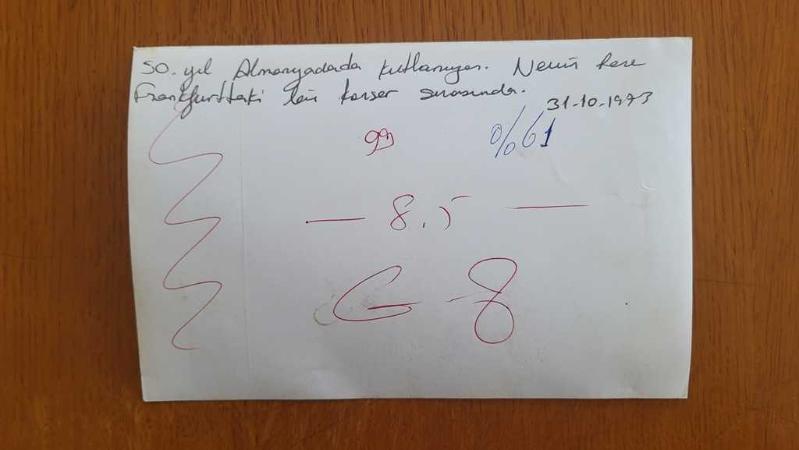 50. yıl Almanyadada kutlanıyor. Nesrin Kese
Frankfurttaki bir konser sırasında.
31-10-1973
99 %61
— 8.5 —
G-8